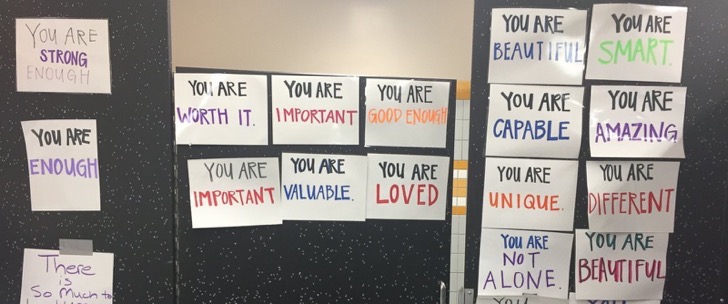 YOU ARE
STRONG
ENOUGH
YOU ARE
ENOUGH
There
is
So much to
YOU ARE
WORTH IT.
YOU ARE
IMPORTANT
YOU ARE
GOOD ENOUGH
YOU ARE
IMPORTANT
YOU ARE
VALUABLE.
YOU ARE
LOVED
YOU ARE
BEAUTIFUL
YOU ARE
SMART.
YOU ARE
CAPABLE
YOU ARE
AMAZING
YOU ARE
UNIQUE.
YOU ARE
DIFFERENT
YOU ARE
NOT
ALONE.
YOU ARE
BEAUTIFUL
YOU